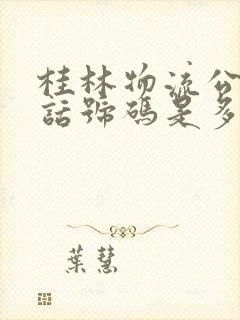 桂林物流公
話號碼是多
葉慧